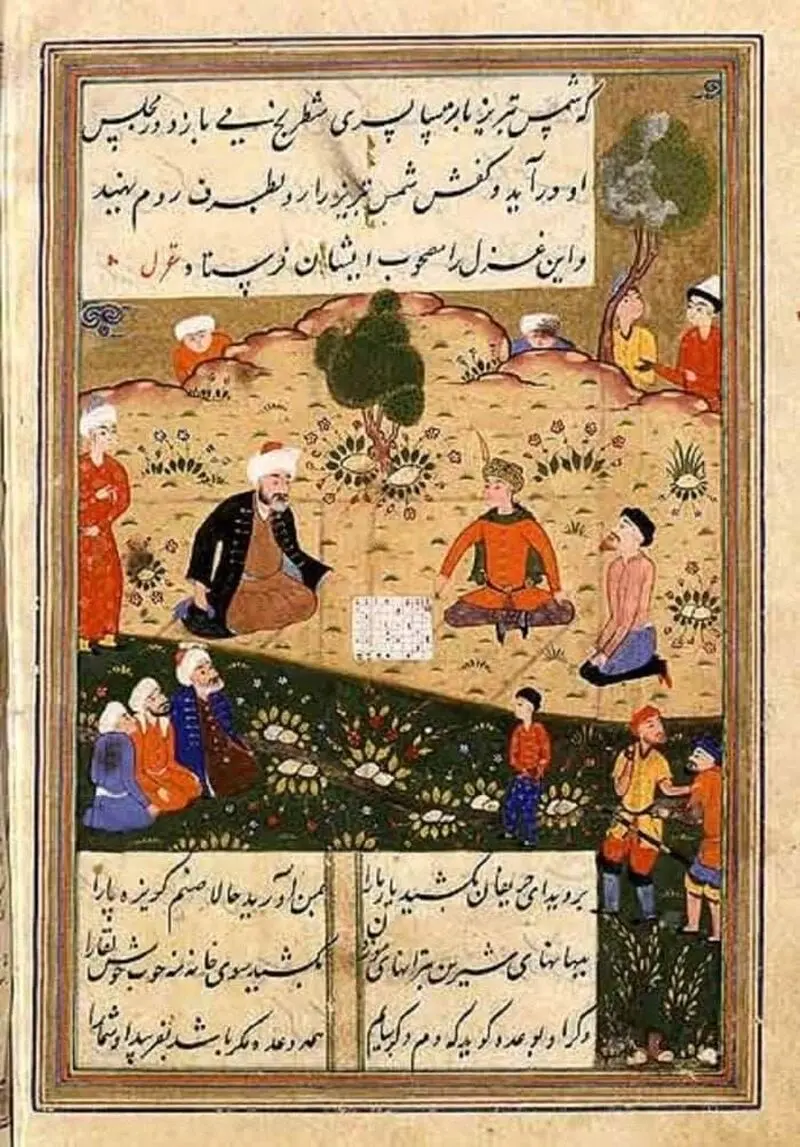 که شمس تبریز با ترسا پسری شطرنج می بازد در مجلس
او درآید و کفش شمس تبریز را رو بطرف روم نهید
و این غزل را مصحوب ایشان فرستاد غزل
بروید ای حریفان بکشید یار ما را
بمن آورید حالا صنم گریزه پا را
ببهانهای شیرین بترانهای موزون
بکشید سوی خانه مه خوب خوش لقا را
وگر او بوعده گوید که دم دگر بیایم
همه وعده مکر باشد بفریبد او شما را